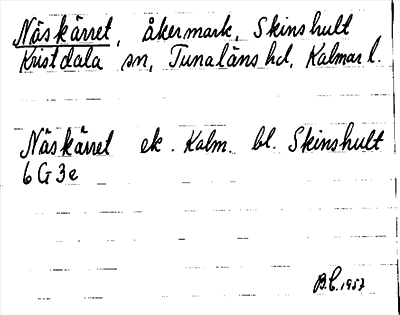 Näskärret, åkermark, Skinshult
Kristdala sn, Tunaläns hd, Kalmar l.
Näskärret ek. Kalm. bl. Skinshult
6 G 3 e
B.C. 1957